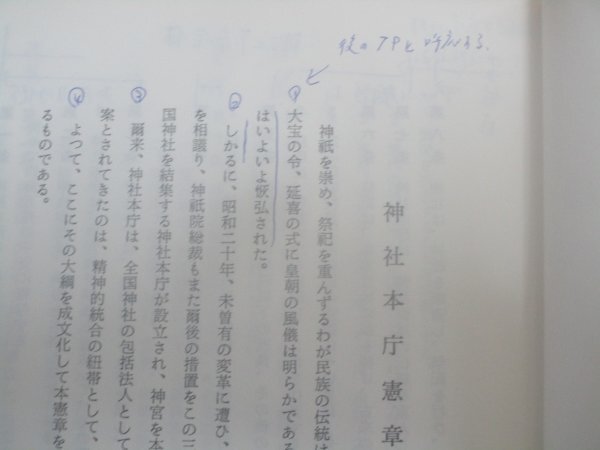 後の7Pと呼応する。
神社本庁憲章
神祇を崇め、祭祀を重んずるわが民族の伝統は
① 大宝の令、延喜の式に皇朝の風儀は明らかである
はいよいよ恢弘された。
② しかるに、昭和二十年、未曽有の変革に遭ひ、
を相議り、神祇院総裁もまた爾後の措置をこの三
国神社を結集する神社本庁が設立され、神宮を本
③ 爾来、神社本庁は、全国神社の包括法人として
案とされてきたのは、精神的統合の紐帯として、
④ よつて、ここにその大綱を成文化して本憲章を
るものである。